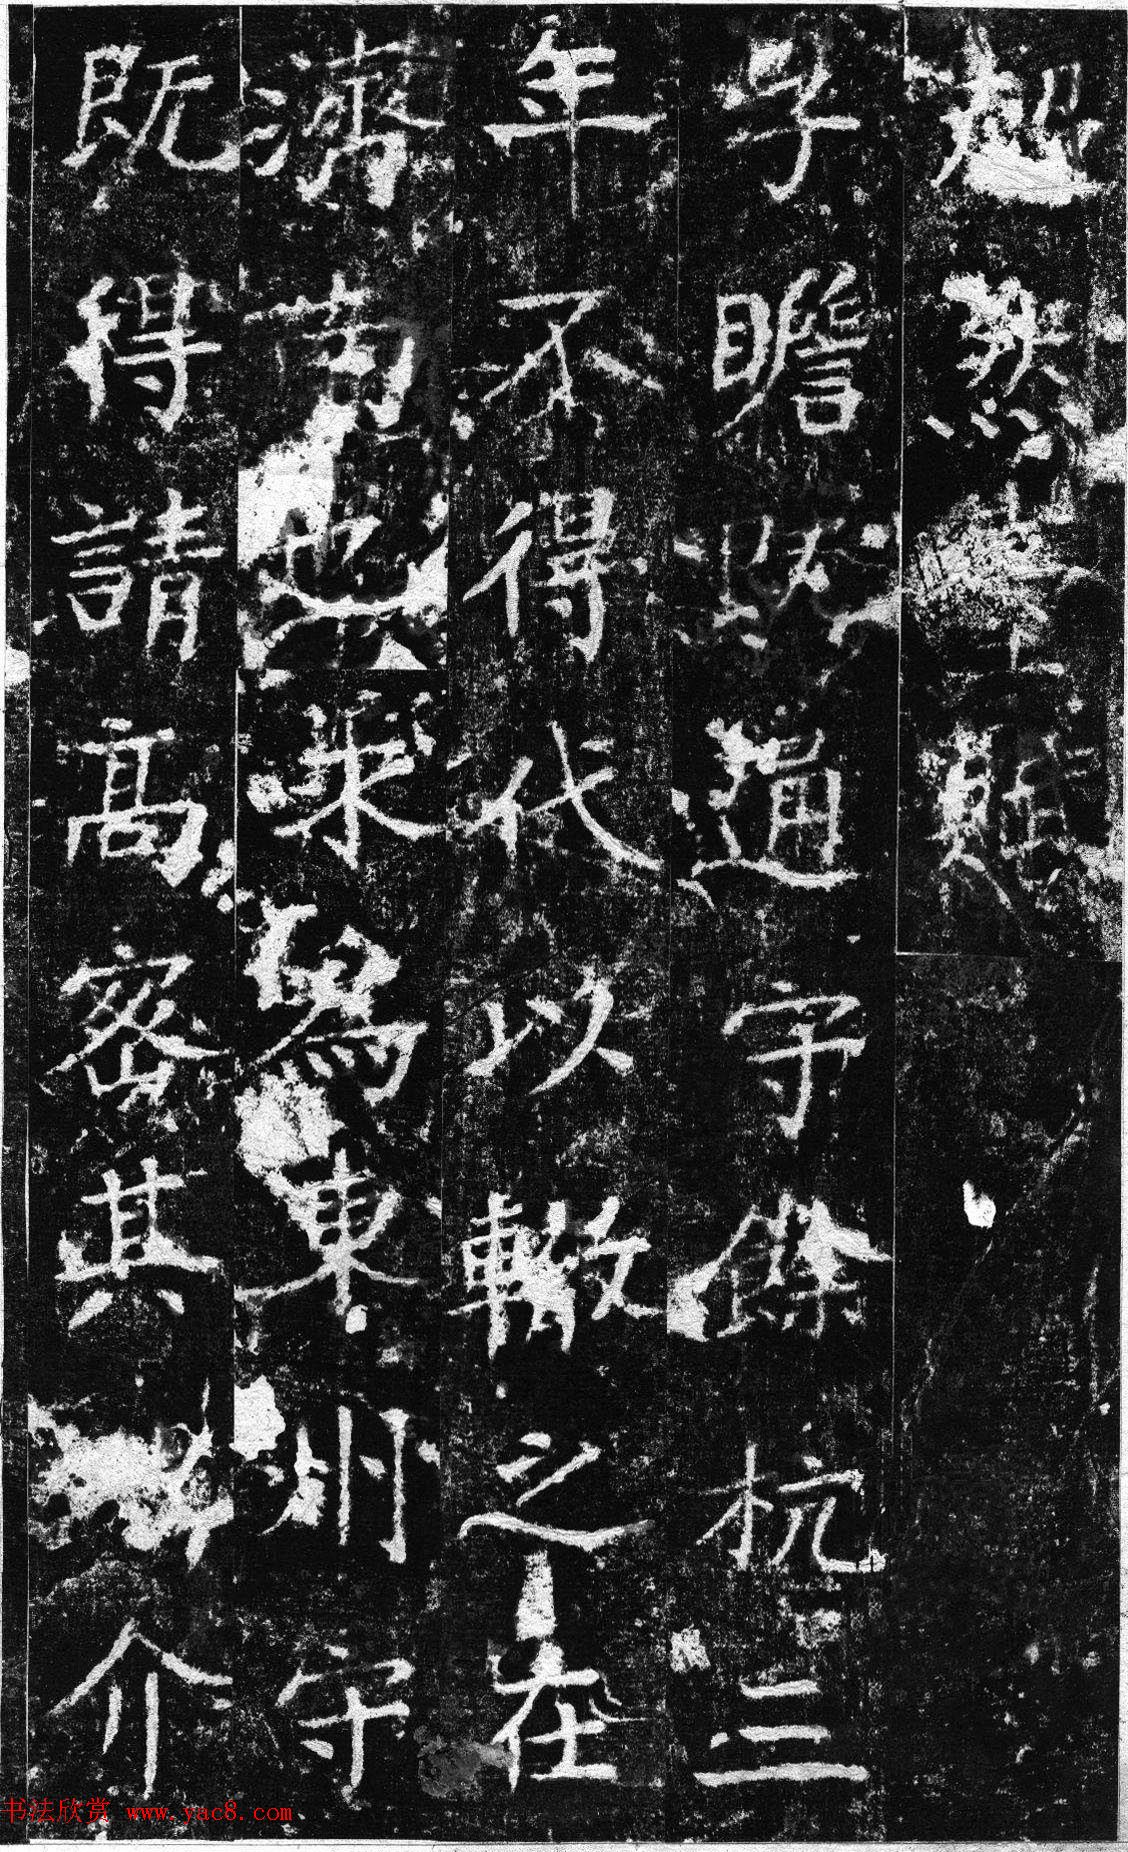 超然臺賦
子瞻以通守餘杭三
年不得代以轍之在
濟南也求爲東州守
既得請高密其
介
书法欣赏 www.yac8.com